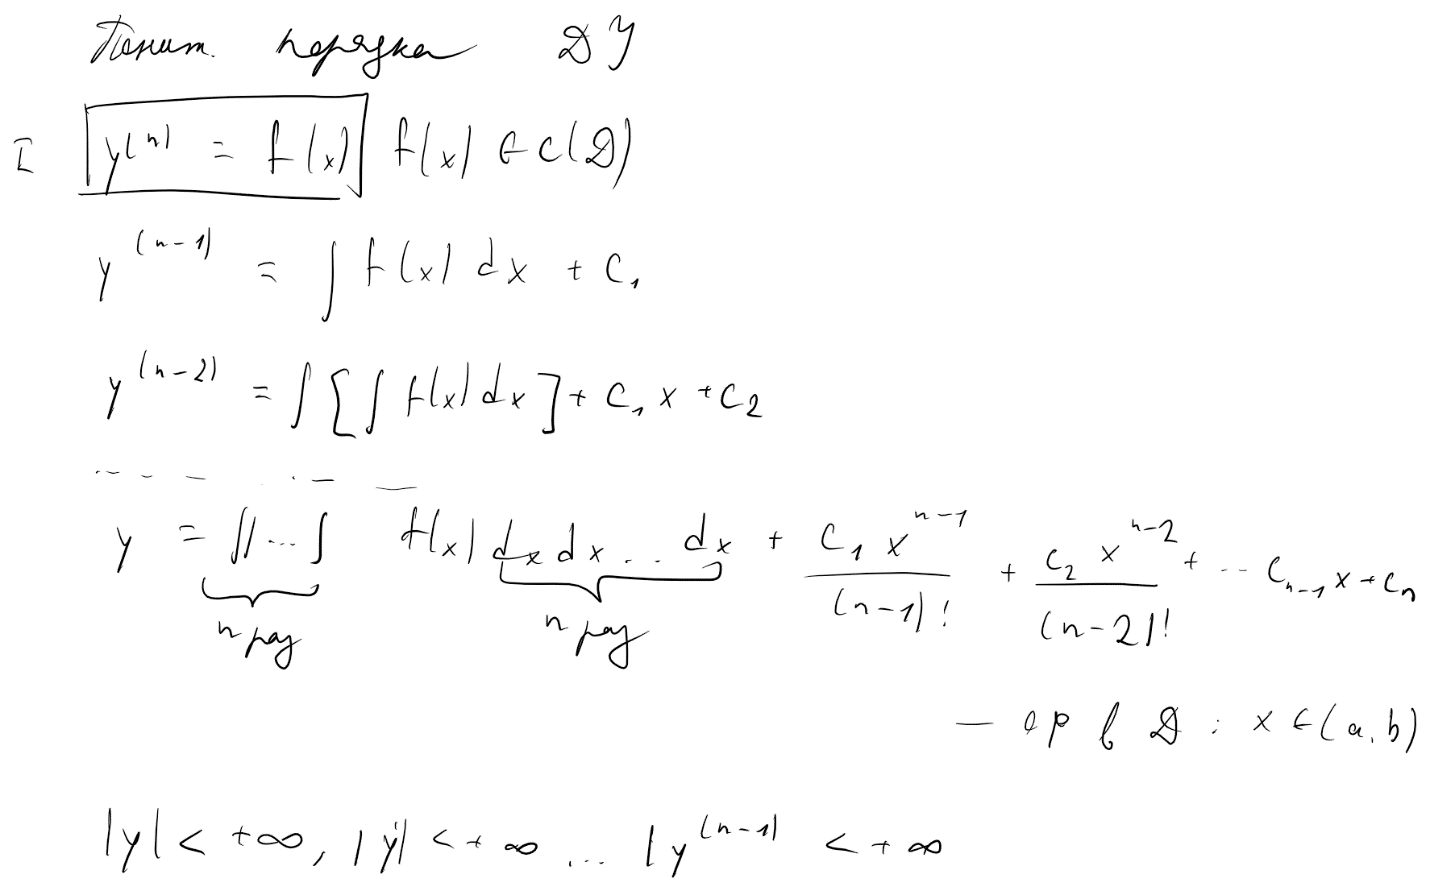 Пониж. порядка ДУ
I y^(n) = f(x) f(x) ∈ C(D)
y^(n-1) = ∫ f(x) dx + C₁
y^(n-2) = ∫ [∫ f(x) dx] + C₁ x + C₂
y = ∫∫...∫ f(x) dx dx ... dx + C₁ x^(n-1) / (n-1)! + C₂ x^(n-2) / (n-2)! + ... C_(n-1) x + C_n
n раз n раз
— ор в D : x ∈ (a, b)
|y| < +∞, |y'| < +∞ ... |y^(n-1)| < +∞